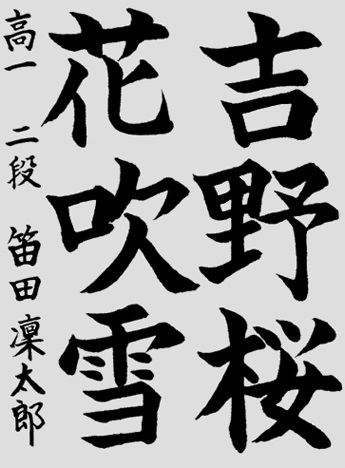 吉野桜
花吹雪
高一 二段 笛田凜太郎